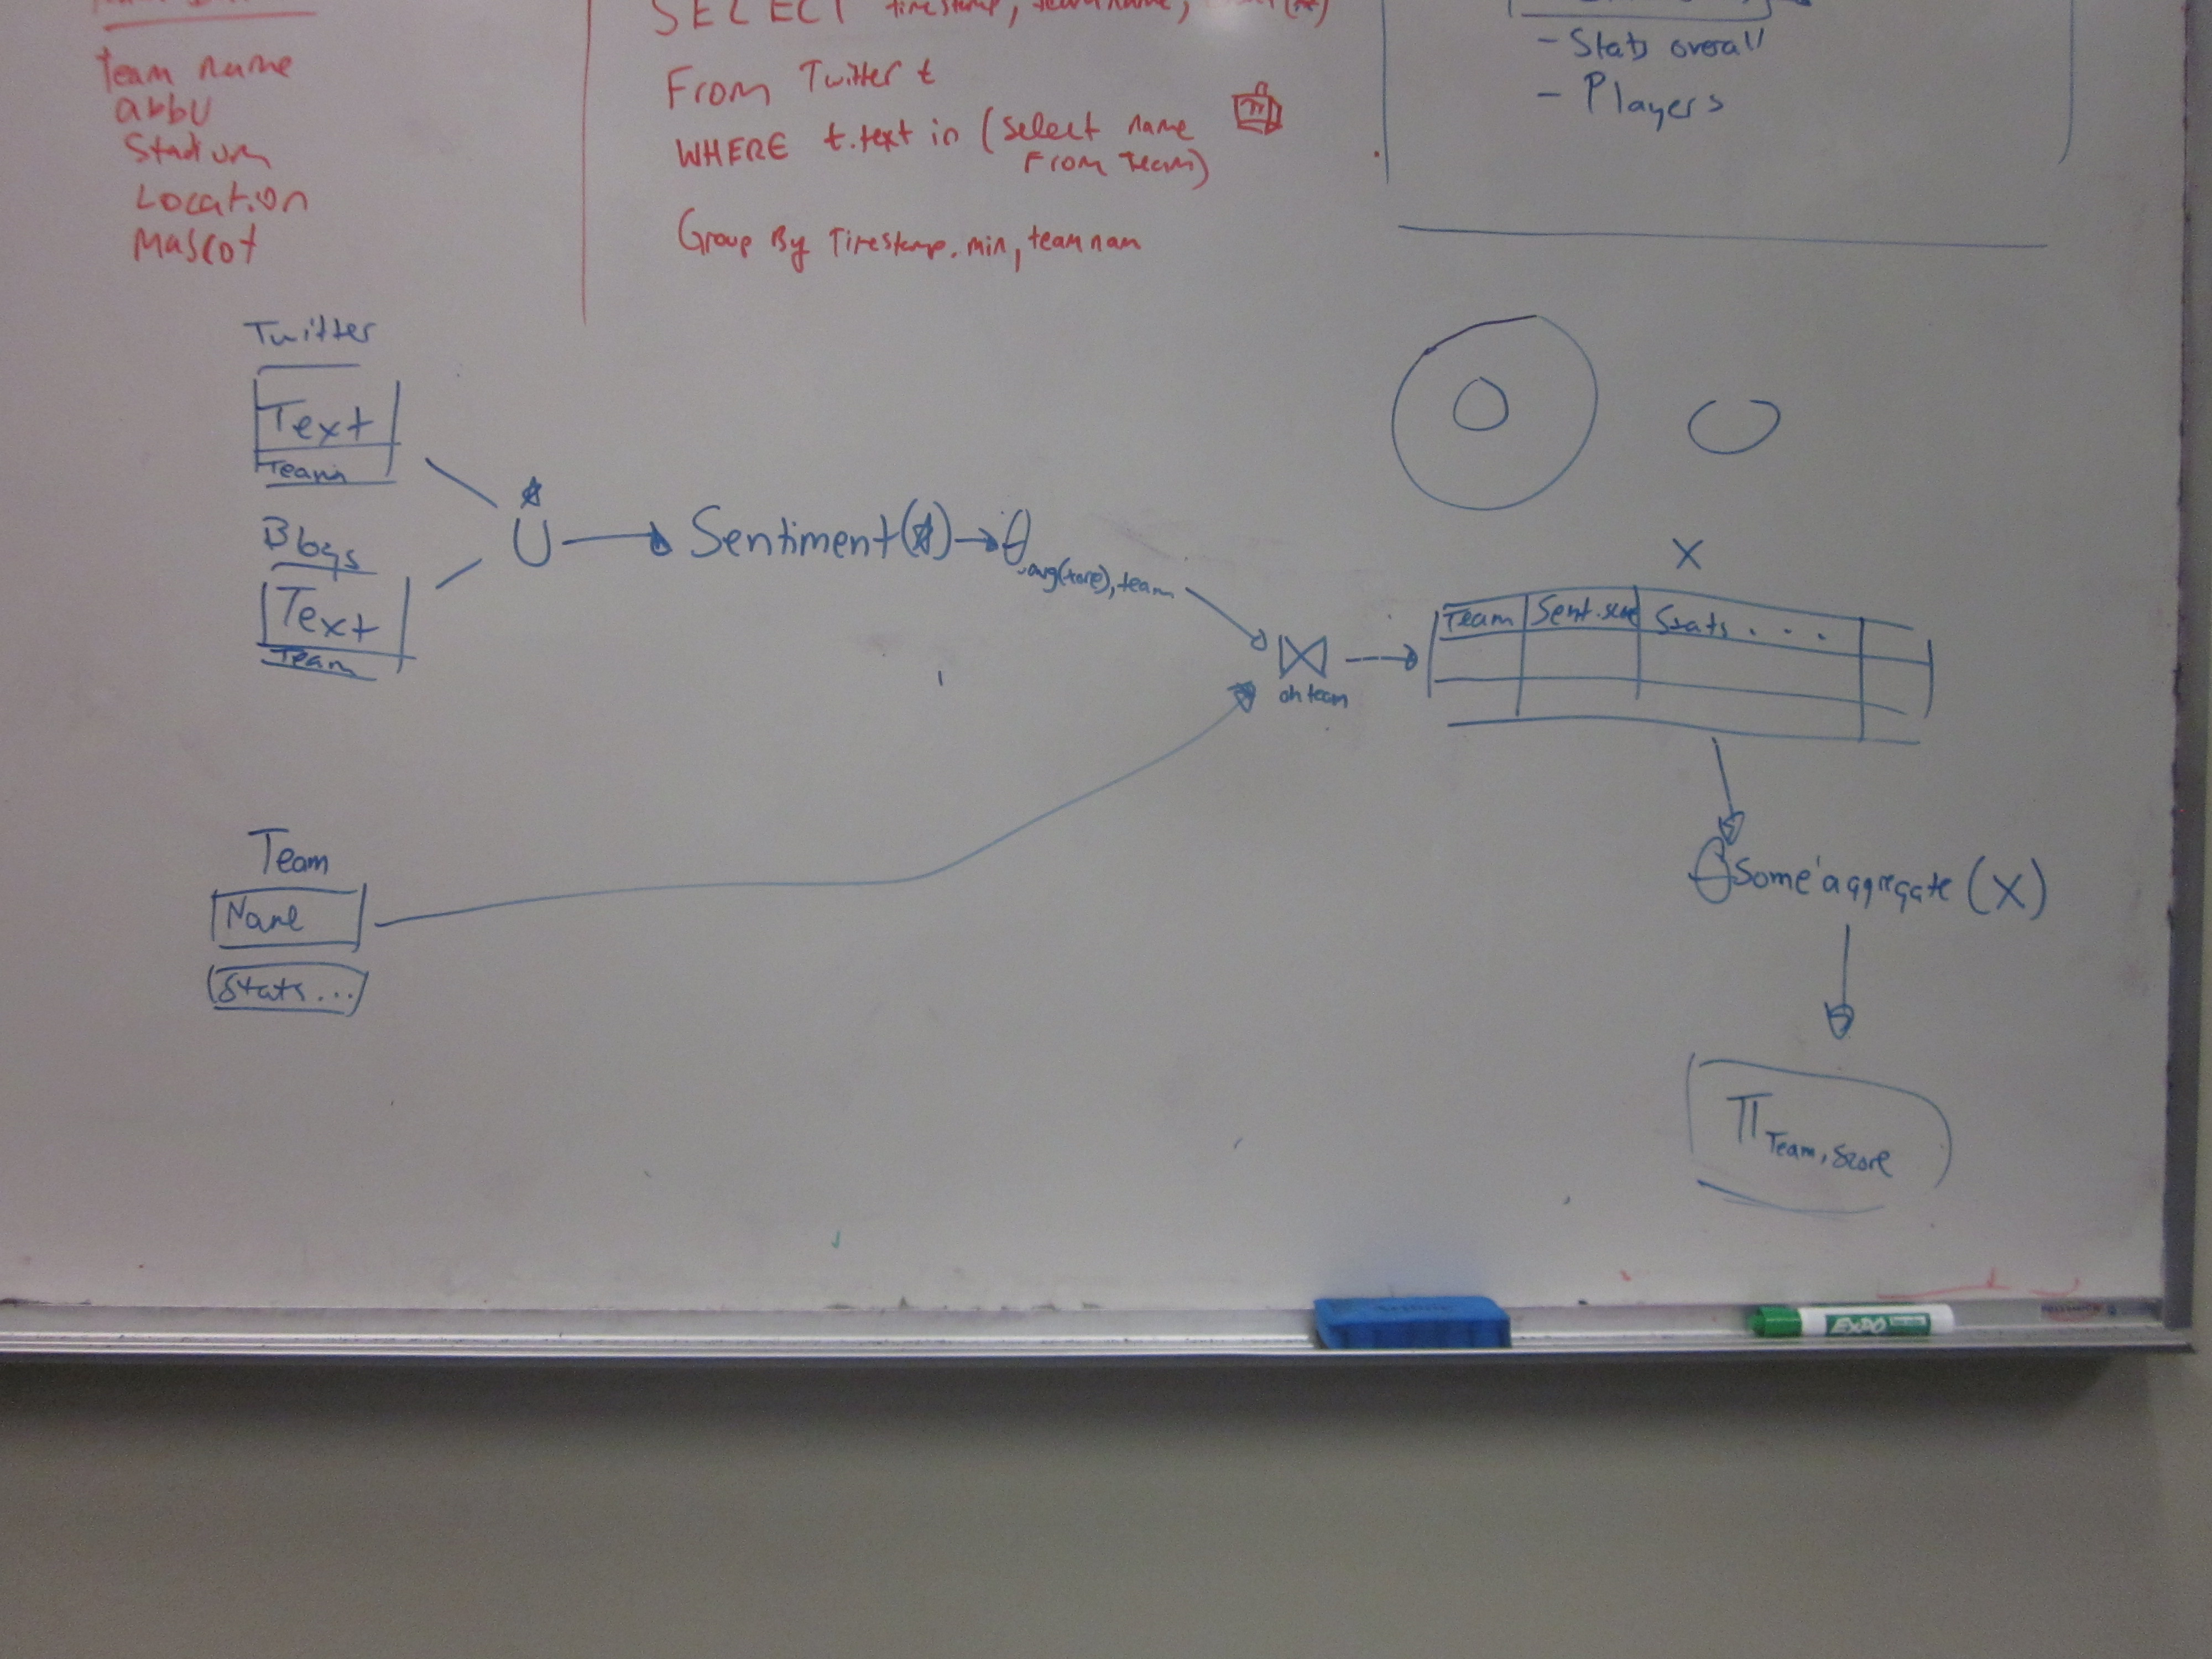 Team name
abbv
Stadium
Location
Mascot
SELECT timestamp, teamname,
From Twitter t
WHERE t.text in (select name
From Team)
Group By Timestamp.min, teamnam
- Stats overall
- Players
Twitter
Text
Team
Blogs
Text
Team
U
Sentiment(☆)
avg(score), team
⋈
on team
X
Team Sent.score Stats . . .
Team
Name
Stats...
Some aggregate (X)
π Team, Score
EXPO